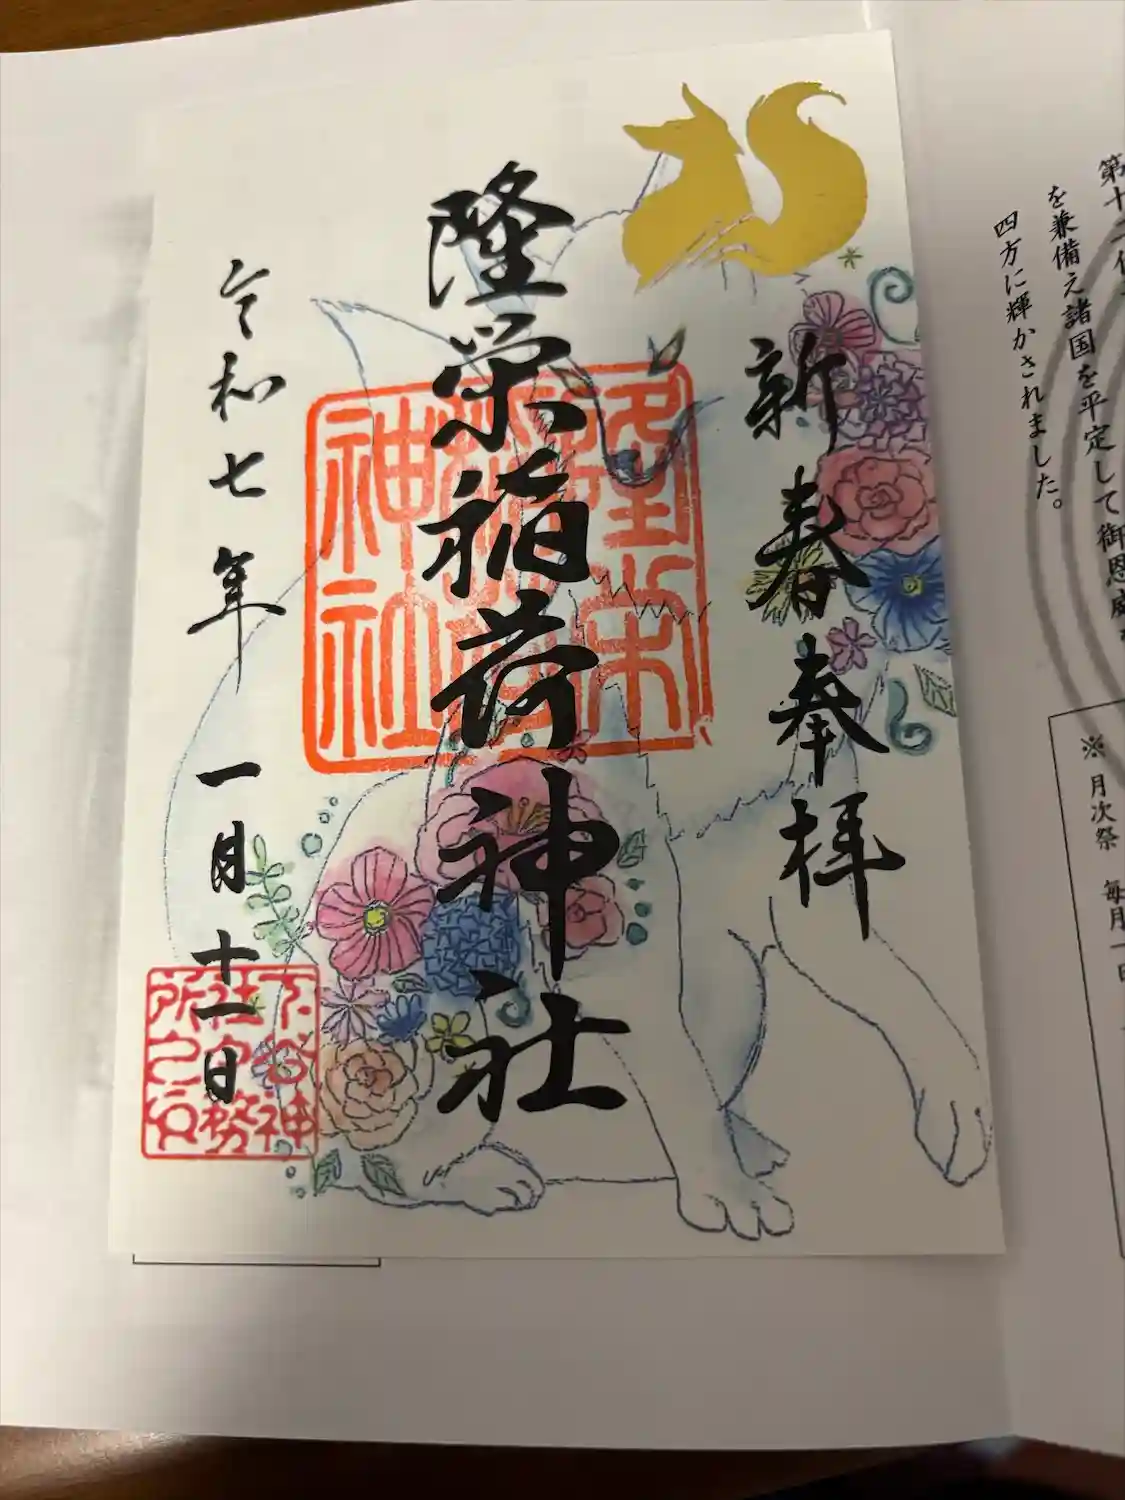 第十二代
を兼備え諸国を平定して御恩威を
四方に輝かされました。
※月次祭 毎月一日
新春奉拝
隆栄稲荷神社
隆栄
稲荷
神社
令和七年 一月十一日
下谷神
社社務
所之印